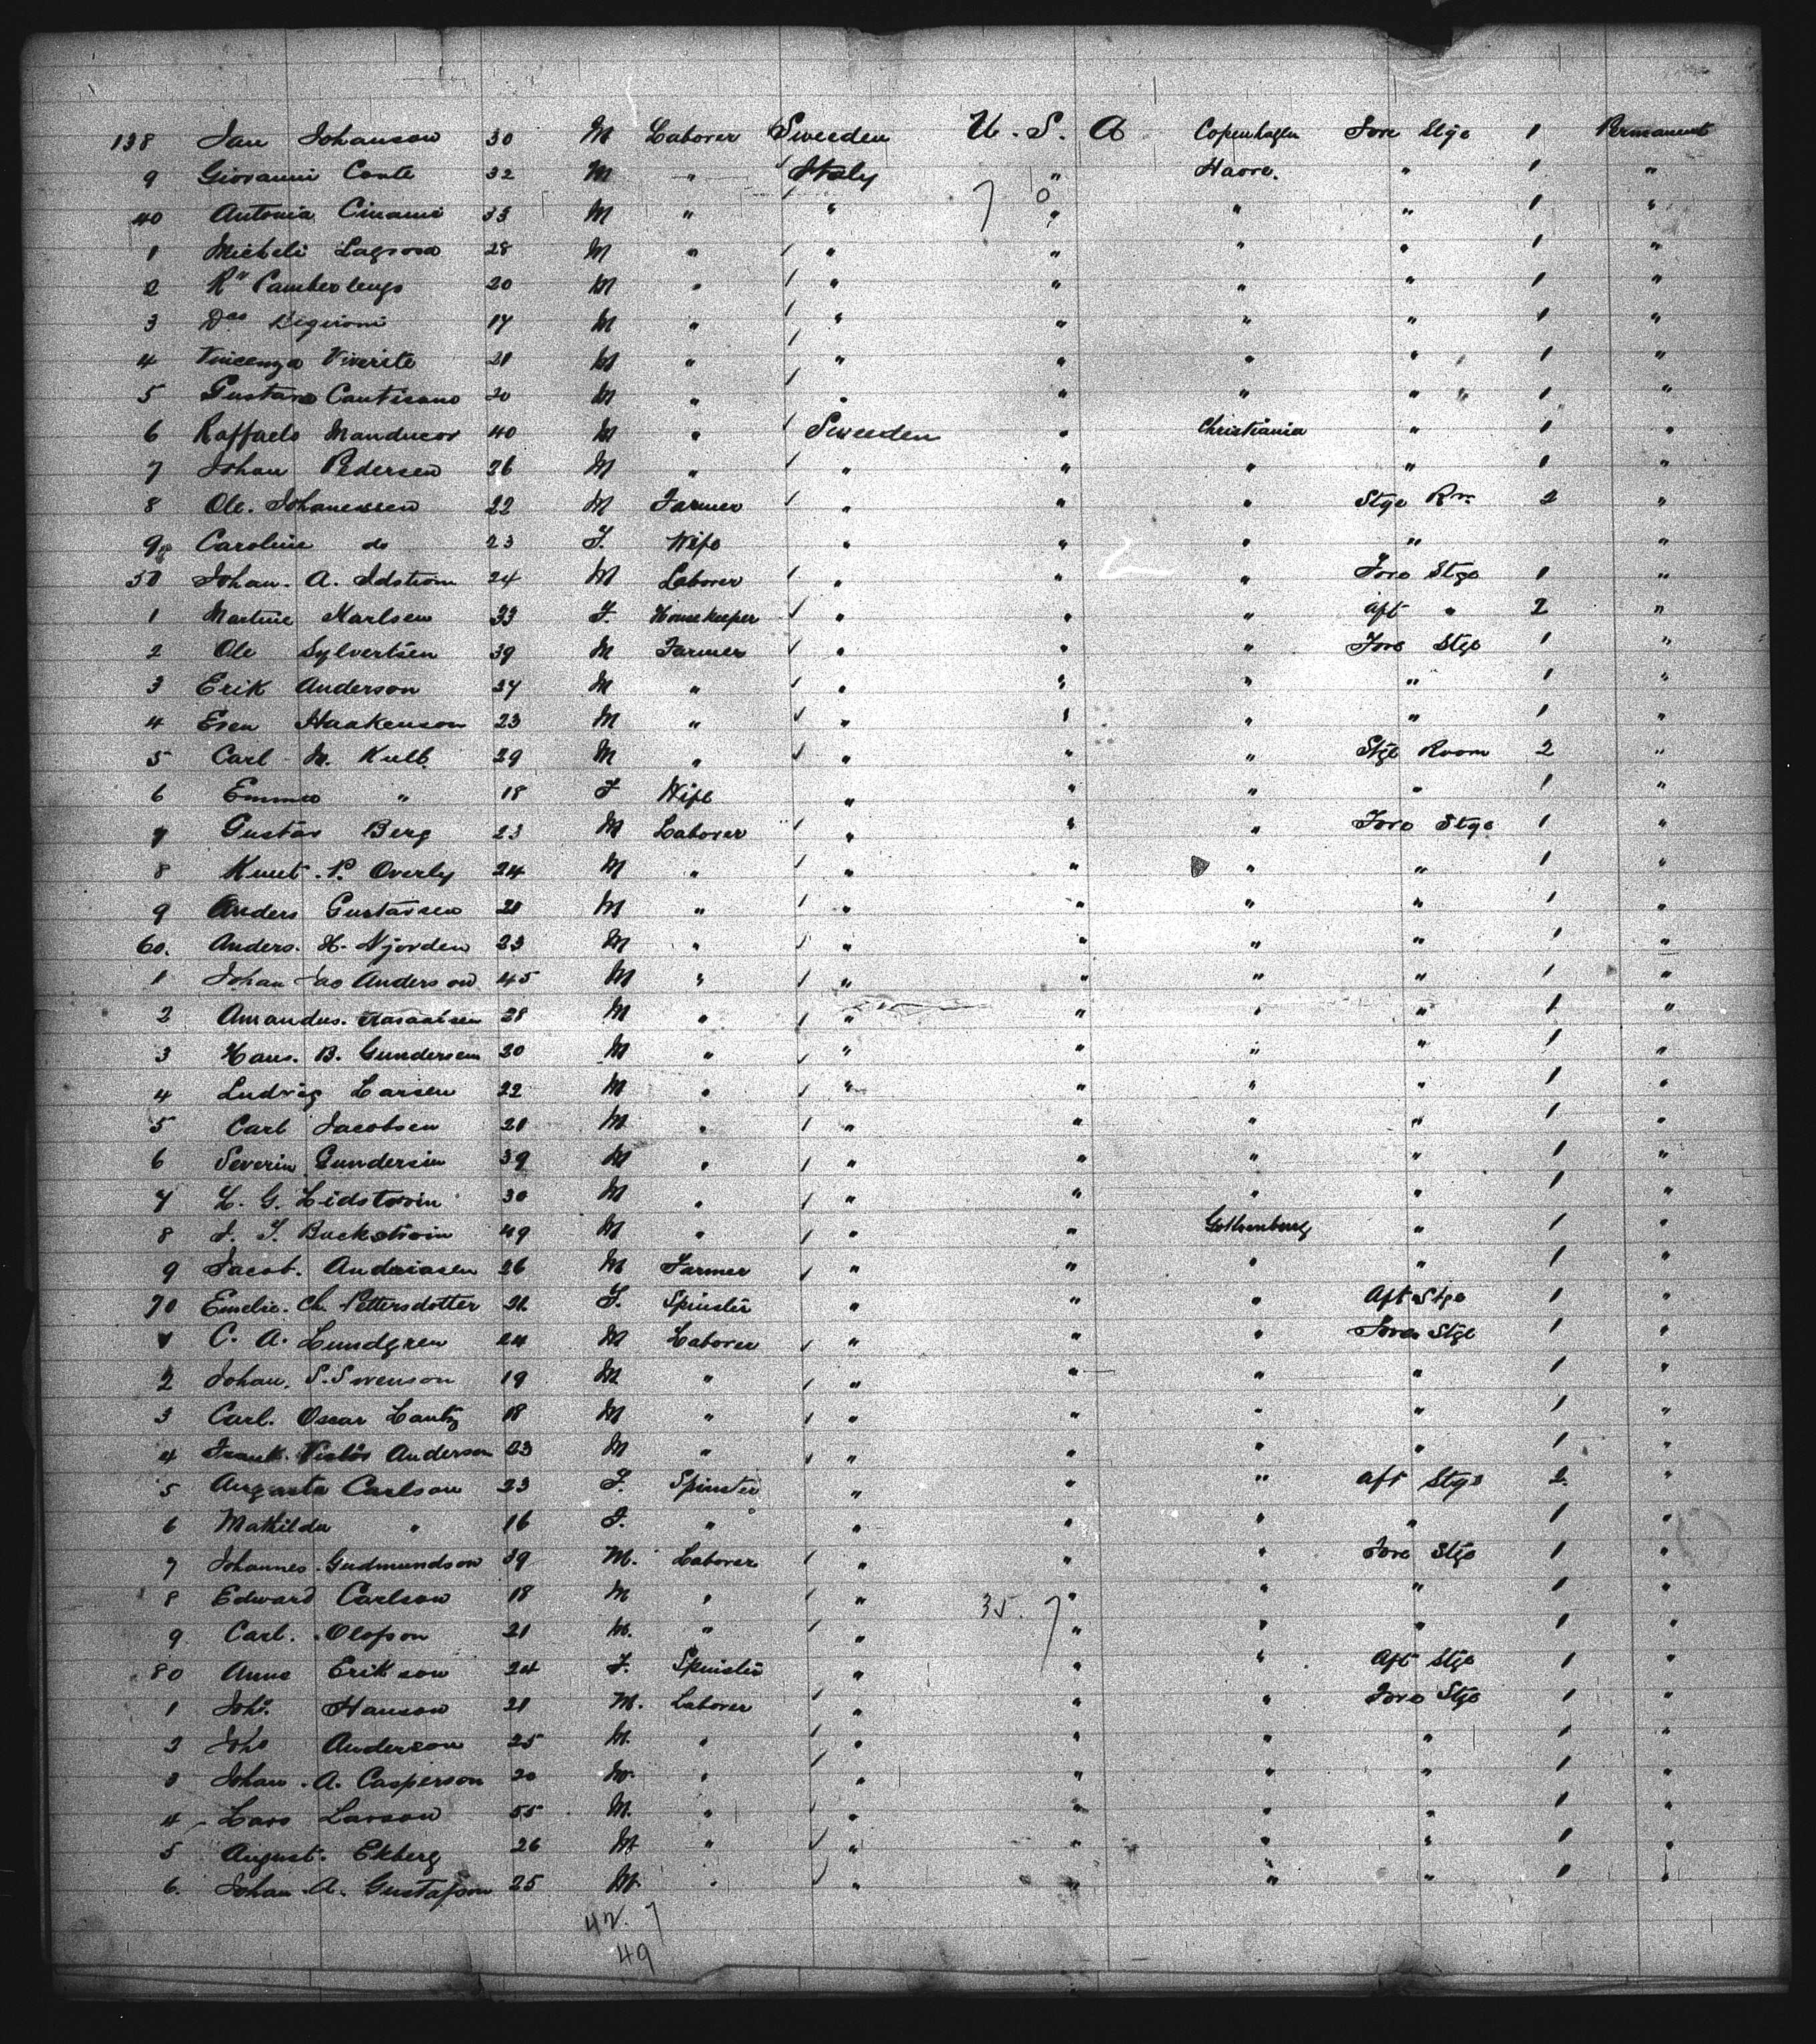 138 Jan Johanson 30 M Laborer Sweeden U. S. A Copenhagen Fore Stge 1 Permanent
9 Giovanni Conte 32 M " Italy " Havre. " 1 "
40 Antonia Cinami 33 M " " 7 0 " " " 1 "
1 Micheli Lagrosa 28 M " " " " " 1 "
2 20 M " " " " " 1 "
3 17 M " " " " " 1 "
4 Vincenza Viverite 21 M " " " " " 1 "
5 Gustavo Cantisano 20 M " " " " " 1 "
6 Raffaelo Manducor 40 M " Sweeden " Christiania " 1 "
7 Johan Pedersen 26 M " " " " " 1 "
8 Ole. Johanessen 22 M Farmer " " " Stge Rm 2 "
9 Caroline do 23 F. Wife " " " " "
50 Johan. A. Idstrom 24 M Laborer " " " Fore Stge 1 "
1 Martine Karlsen 33 F. Housekeeper " " " Aft " 2 "
2 Ole Sylvertsen 39 M Farmer " " " Fore Stge 1 "
3 Erik Anderson 27 M " " " " " 1 "
4 Even Haakenson 23 M " " " " " 1 "
5 Carl M. Kulb 29 M " " " " Stge Room 2 "
6 Emma " 18 F Wife " " " " 1 "
7 Gustav Berg 23 M Laborer " " " Fore Stge 1 "
8 Knut. P. Overly 24 M " " " " " 1 "
9 Anders Gustavsen 21 M " " " " " 1 "
60. Anders. H. Njorden 23 M " " " " " 1 "
1 Johan Anderson 45 M " " " " " 1 "
2 Amandus. 28 M " " " " " 1 "
3 Hans. B. Gundersen 20 M " " " " " 1 "
4 Ludvig Larsen 22 M " " " " " 1 "
5 Carl Jacobsen 21 M " " " " " 1 "
6 Severin Gundersen 39 M " " " " " 1 "
7 L. G. Lidstrom 30 M " " " " " 1 "
8 J. F. Buckstrom 49 M " " " Gothenburg " 1 "
9 Jacob. Andriasen 26 M Farmer " " " " 1 "
70 Emelie. Ch. Pettersdotter 21 F. Spinster " " " Aft Stge 1 "
1 C. A. Lundgren 24 M Laborer " " " Fore Stge 1 "
2 Johan. S. Svenson 19 M " " " " " 1 "
3 Carl. Oscar Lantz 18 M " " " " " 1 "
4 Frank. Victor Anderson 23 M " " " " " 1 "
5 Augusta Carlson 23 F. Spinster " " " Aft Stge 2 "
6 Mathilda " 16 F. " " " " " 1 "
7 Johannes. Gudmundson 39 M. Laborer " " " Fore Stge 1 "
8 Edward Carlson 18 M " " 35. 7 " " " 1 "
9 Carl. Olofson 21 M. " " " " " 1 "
80 Anna Erikson 24 F. Spinster " " " Aft Stge 1 "
1 Joh. Hanson 21 M. Laborer " " " Fore Stge 1 "
2 Joho Anderson 25 M. " " " " " 1 "
3 Johan. A. Casperson 20 M. " " " " " 1 "
4 Lars Larson 55 M. " " " " " 1 "
5 August. Ekberg 26 M " " " " " 1 "
6. Johan. A. Gustafson 25 M. " " " " " 1 "
42. 7
49